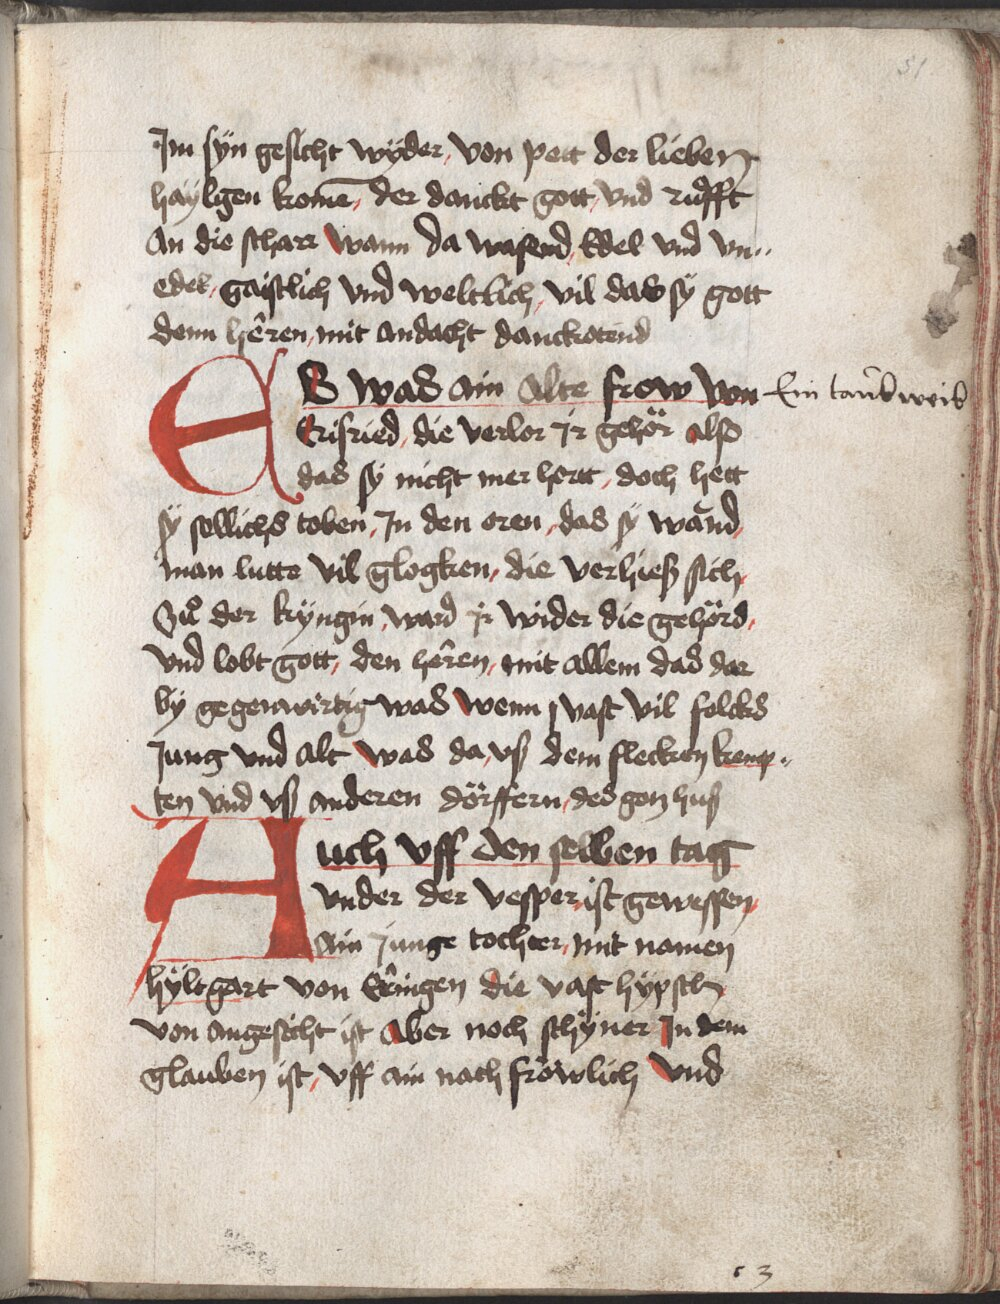 51
Im syn gesicht wyder, von pett der lieben
hayligen komē, der danckt gott, vnd růfft
an die scharr wann da wasend, Edel vnd vn..
edel, gaistlich vnd weltlich, vil das sy gott
denn hêren, mit andacht danckotend
ES was ain alte frow von
Ein taubs weib
Erisried, die verlor ir gehör also
das sy nicht mer hortt, doch hett
sy sellichs toben, In den oren, das sy wänd,
man lutte vil glogken, die verhieß sich,
Zů der kyngin, ward ir wider die gehörd,
vnd lobt gott, den hêren, mit allem das dar
by gegenwirtig was wenn vast vil folcks
Jung vnd alt was da, vß dem flecken kemp..
ten vnd vß anderen dörffern, des gon huß
Auch vff den selben tag
vnder der vesper, ist gewessen,
ain junge tochter, mit namen
hyltgart von Eêringen die vast hypsch
von angesicht ist aber noch schyner In dem
glauben ist, vff ain nach fröwlich vnd
53